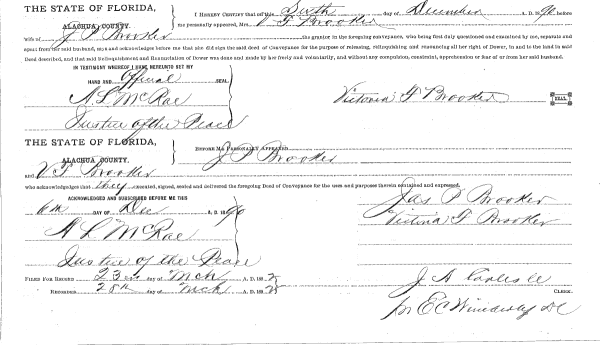 THE STATE OF FLORIDA,
ALACHUA COUNTY.
I HEREBY CERTIFY that on this Sixth day of December A. D. 90, before
me personally appeared, Mrs. V F Brooker
wife of J P Brooker the grantor in the foregoing conveyance, who being first duly questioned and examined by me, separate and
apart from her said husband, and acknowledges before me that she did sign the said deed of Conveyance for the purpose of releasing, relinquishing and renouncing all her right of Dower, in and to the land in said
Deed described, and that said Relinquishment and Renunciation of Dower was done and made by her freely and voluntarily, and without any compulsion, constraint, apprehension or fear of or from her said husband.
IN TESTIMONY WHEREOF I HAVE HEREUNTO SET MY
HAND AND Official SEAL
A L McRae
Victoria F Brooker SEAL
Justice of the Peace
THE STATE OF FLORIDA,
ALACHUA COUNTY.
BEFORE ME PERSONALLY APPEARED J P Brooker
and V F Brooker
who acknowledges that they executed, signed, sealed and delivered the foregoing Deed of Conveyance for the uses and purposes therein contained and expressed.
ACKNOWLEDGED AND SUBSCRIBED BEFORE ME THIS
6th DAY OF Dec A. D. 1890
Jas P Brooker
Victoria F Brooker
A L McRae
Justice of the Peace
FILED FOR RECORD 23rd day of Mch A. D. 188
J A Carlisle
RECORDED 28th day of Mch A. D. 188
CLERK.
pr E C Wimberly DC